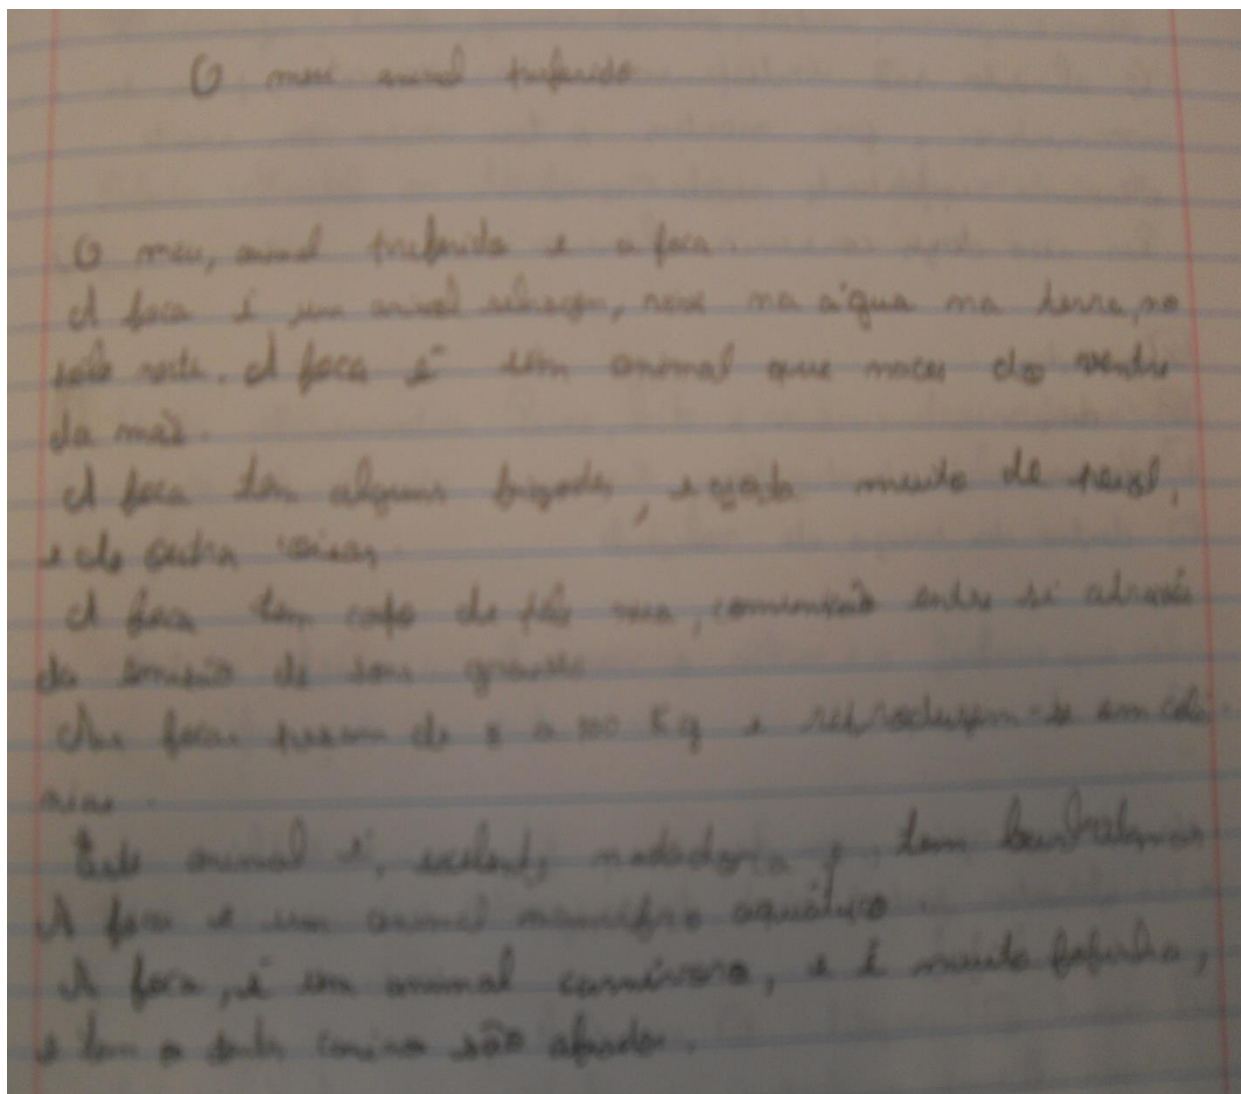 O meu animal preferido
O meu, animal preferido e a foca.
A foca é um animal selvagem, vive na água na terra, no
polo norte. A foca é um animal que nasce do ventre
da mãe.
A foca tem alguns bigodes, e gosta muito de peixe,
e de outra coisas
A foca tem de pêlo comunicação entre si através
da emissão de sons graves
As focas pesam de a 100 Kg e reproduzem-se em coló-
nias.
Este animal é, excelente nadadora e, tem barbatanas
A foca e um animal mamífero aquático.
A foca, é um animal carnívoro, e é muito fofinha,
e tem o dente canino são afiados.